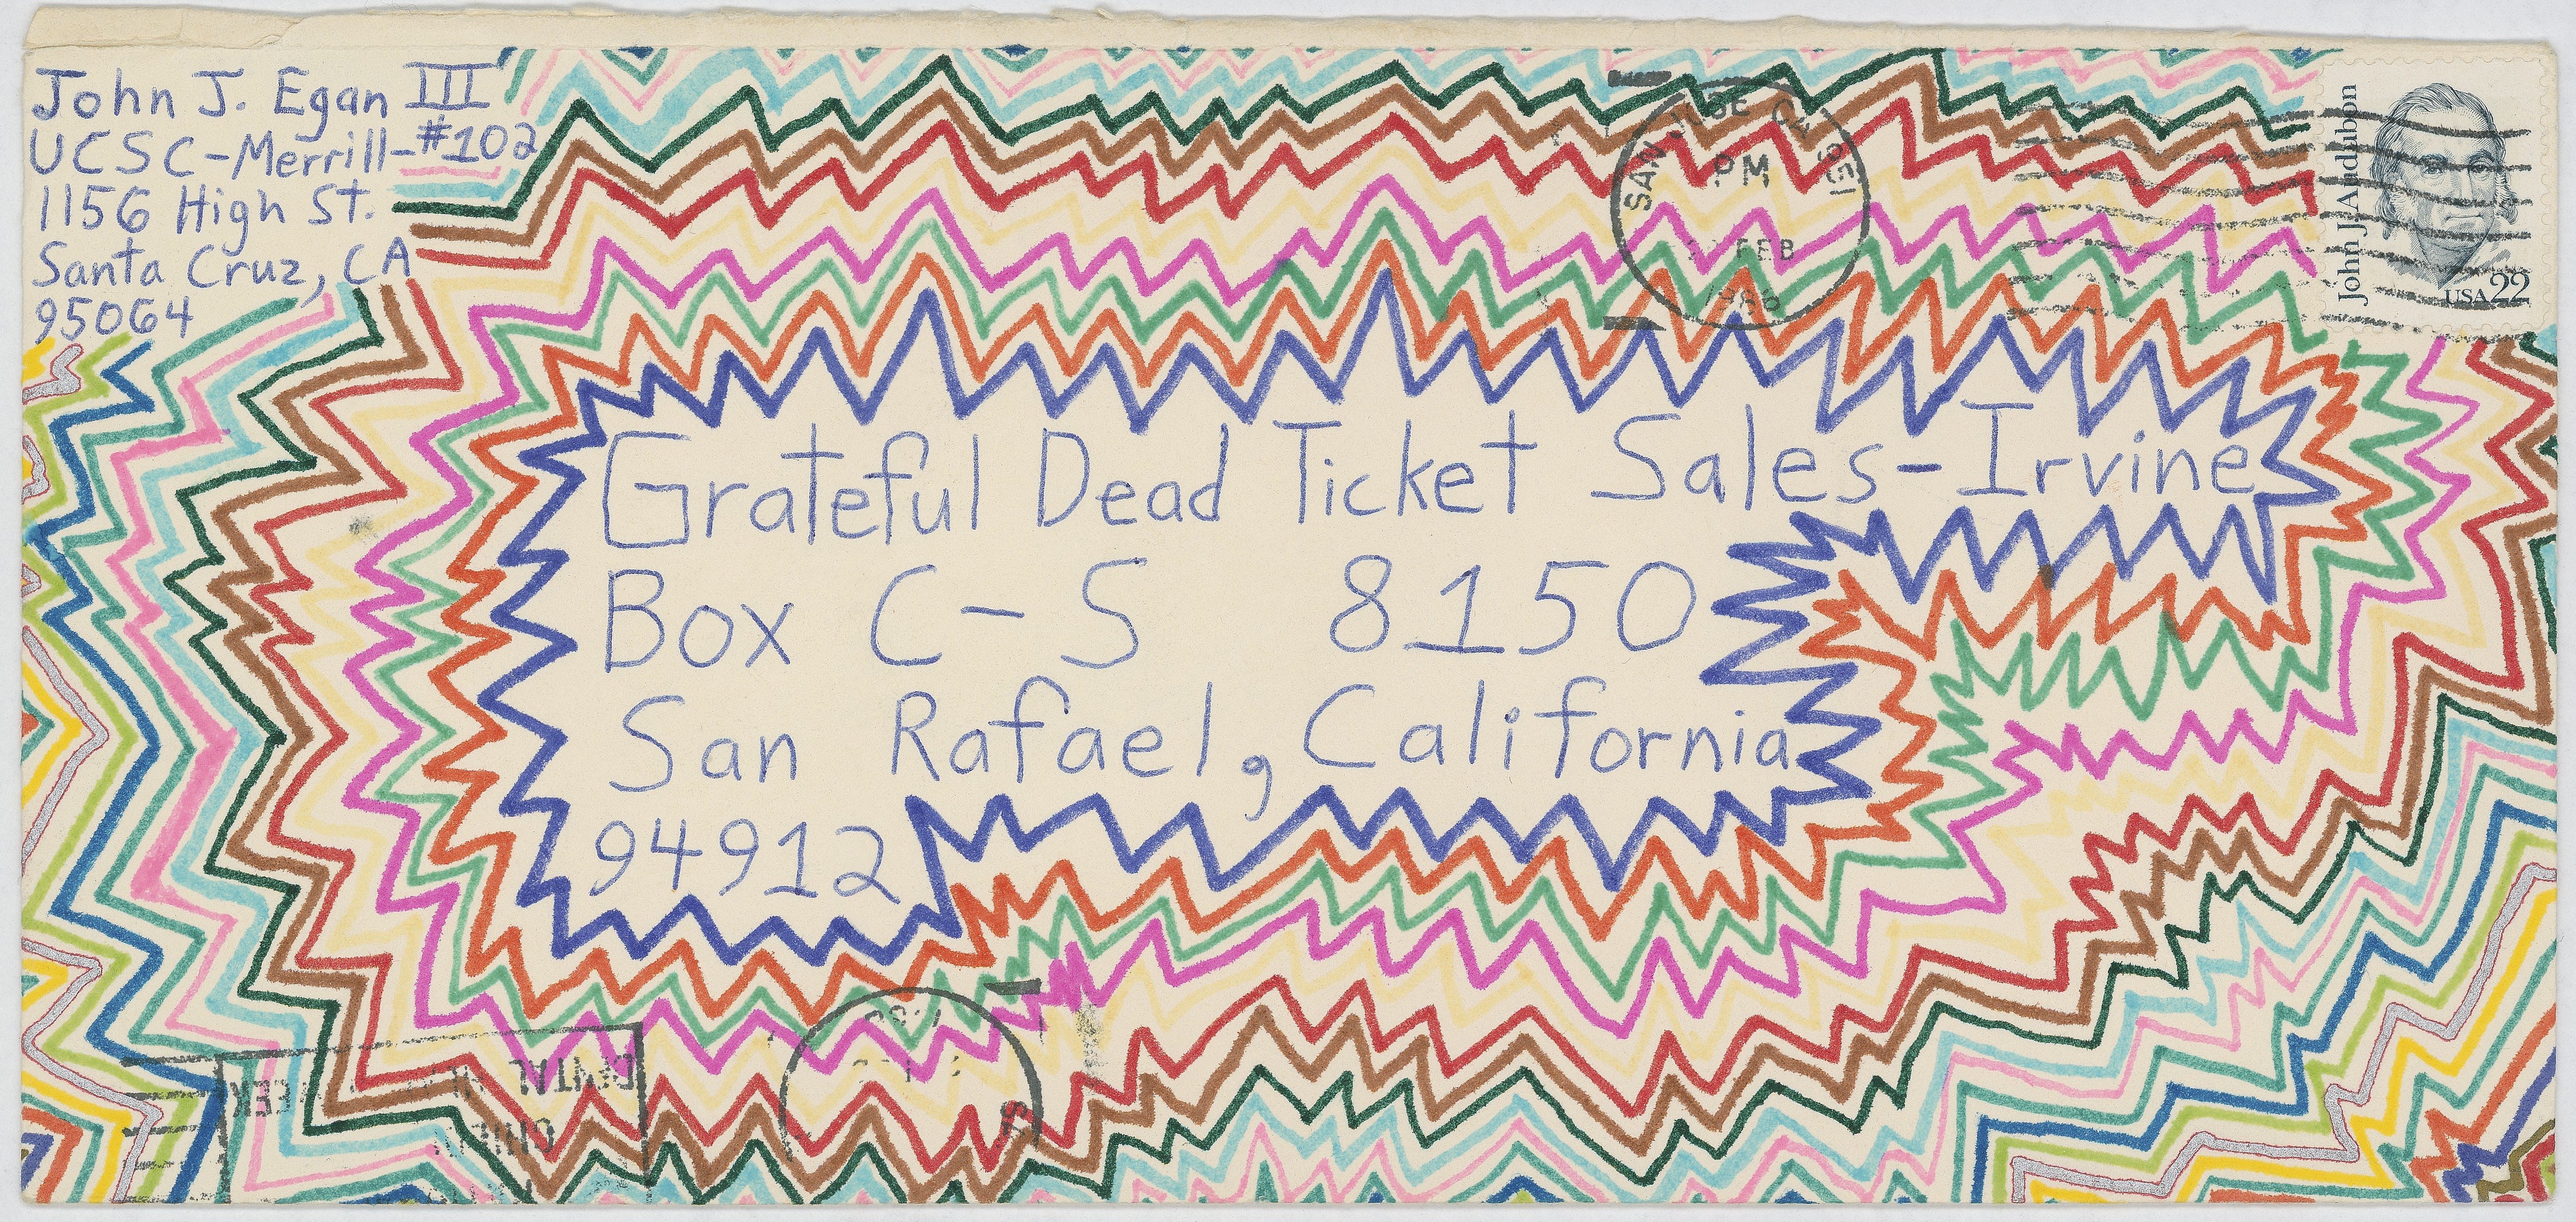 John J. Egan III
UCSC-Merrill-#102
1156 High St.
Santa Cruz, CA
95064
SAN JOSE CA 951
PM
FEB
1986
John J. Audubon
USA 22
Grateful Dead Ticket Sales-Irvine
Box C-S 8150
San Rafael, California
94912
DENTAL
WEEK